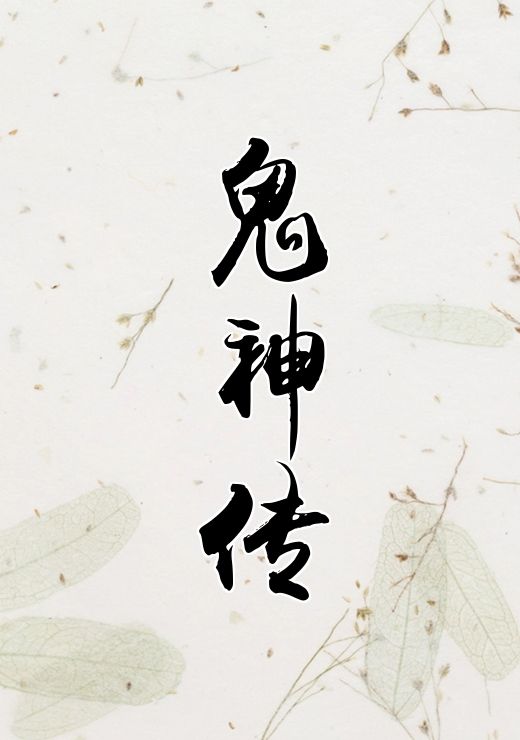 鬼神传